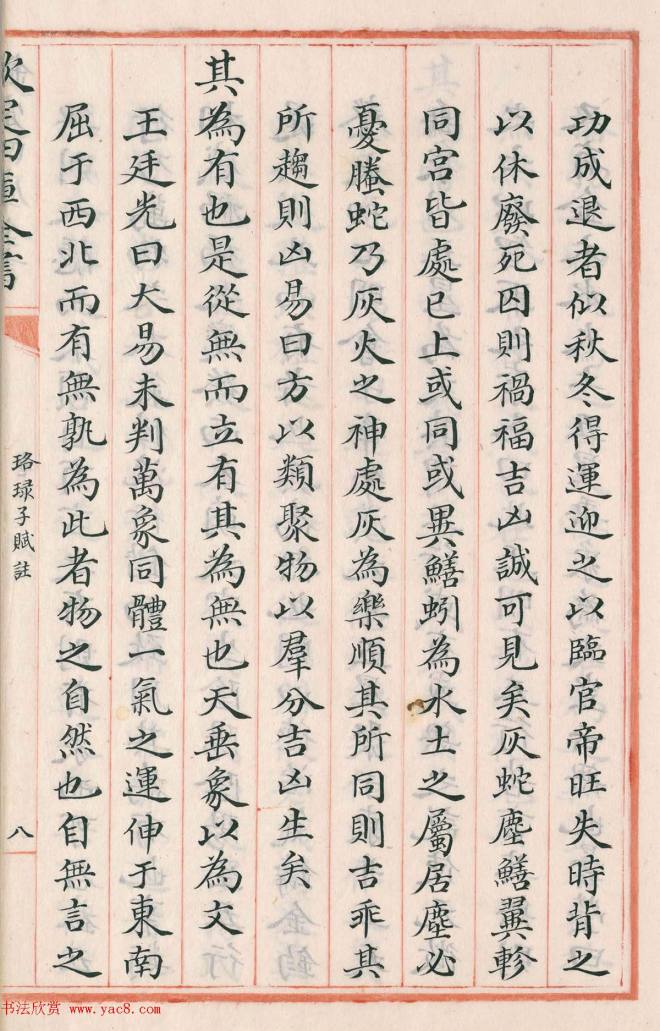 功成退者似秋冬得運迎之以臨官帝旺失時背之
以休廢死囚則禍福吉凶誠可見矣灰蛇塵鱔翼軫
同宮皆處巳上或同或異鱔蚓為水土之屬居塵必
憂螣蛇乃灰火之神處灰為樂順其所同則吉乖其
所趨則凶易曰方以類聚物以羣分吉凶生矣
其為有也是從無而立有其為無也天垂象以為文
王廷光曰大易未判萬象同體一氣之運伸于東南
屈于西北而有無孰為此者物之自然也自無言之
欽定四庫全書
珞琭子賦註
八
书法欣赏 www.yac8.com